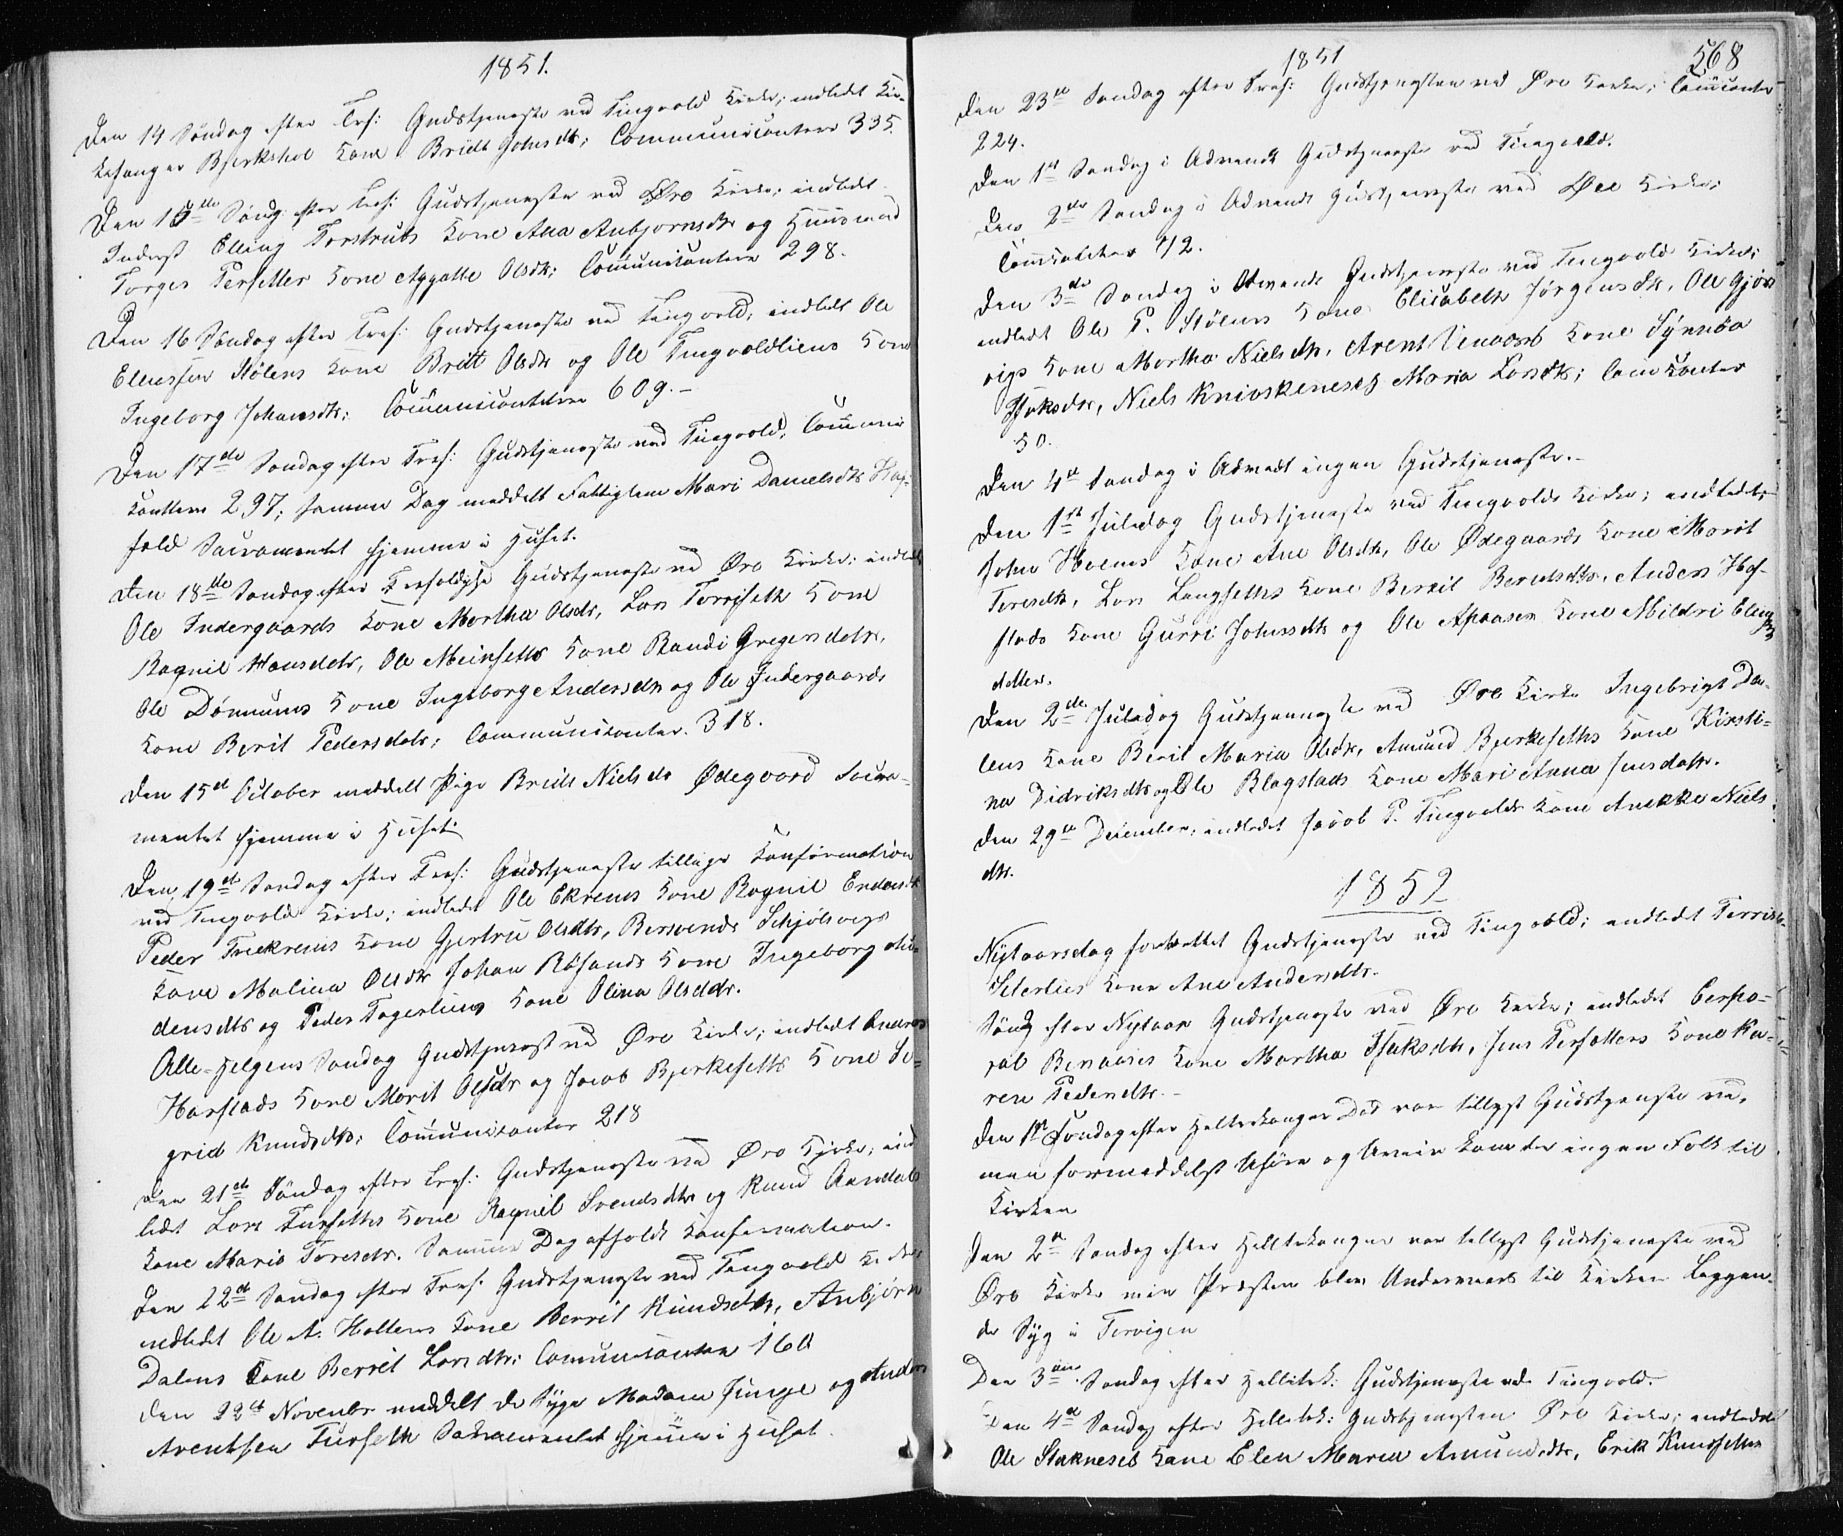 1851.
Den 14 Søndag efter Tref: Gudstjeneste ved Tingvold Kirke; indledt Kir-
kesanger Bjerkshol Kone Britt Johnsdtr; Communicantere 335.
Den 15de Søndg efter Tref: Gudstjeneste ved Øre Kirke; indledt
Inderst Elling Torstrubs Kone Ana Anbjørnsdtr og Huusmand
Torger Persetter Kone Aggatte Olsdtr; Communicantere 298.
Den 16 Søndag efter Tref: Gudstjeneste ved Tingvold; indledt Ole
Ellensen Stølens Kone Britt Olsdtr og Ole Tingvoldliens Kone
Ingeborg Johansdtr; Communicantere 609.-
Den 17de Søndag efter Tref: Gudstjeneste ved Tingvold; Communi
cantere 297; samme Dag meddelt Fattiglem Mari Danielsdtr
fald Sacramentet hjemme i Huset.
Den 18de Søndag efter Trefoldighe Gudstjeneste ved Øre Kirke; indledt
Ole Indergaards Kone Martha Olsdtr, Lars Torrisseth Kone
Ragnil Hansdtr, Ole Meinsetts Kone Randi Gregersdatr,
Ole Dønnums Kone Ingeborg Andersdtr og Ole Indergaards
Kone Berit Pedersdatr; Communicanter. 318.
Den 15d October meddelt Pige Britt Nielsdr Ødegaard Sacra-
mentet hjemme i Huset
Den 19de Søndag efter Tref: Gudstjeneste tillige Konfirmation
ved Tingvold Kirke; indledt Ole Ekrens Kone Ragnil Endersdtr
Peder Kone Gjertru Olsdtr, Bersvends Schjølsvigs
Kone Malina Olsdtr Johan Røsands Kone Ingeborg An-
densdtr og Peder Fagerliens Kone Olina Olsdtr.
Alle-Helgens Søndag Gudstjenest ved Øre Kirke; indledt Anders
Harstads Kone Marit Olsdtr og Jacob Bjerkesetts Kone Si-
grid Knudsdtr; Communicanter 218
Den 21de Søndag efter Tref: Gudstjeneste ved Øre Kirke; ind
ledt Lars Furseths Kone Ragnil Svendsdtr og Knud Aandals
Kone Marit Toresdtr. Samme Dag afholdt Konfirmation.
Den 22de Søndag efter Tref: Gudstjeneste ved Tingvold Kirke
indledt Ole A. Holtens Kone Berrit Knudsdtr, Anbjørn
Dalens Kone Berret Larsdtr; Comunicantere 160
Den 22de Novembr meddelt de Syge Madame Junge og Anders
Arentsen Furseth Sakramentet hjemme i Huset.
1851
568
Den 23de Søndag efter Tref: Gudstjenesten ved Øre Kirke; Comicanter
224.
Den 1st Søndag i Advendt Gudstjeneste ved Tingvold.
Den 2den Søndag i Advendt Gudstjeneste ved Øre Kirke;
Comicanter 72.
Den 3de Søndag i Advendt Gudstjeneste ved Tingvold Kirke;
indledt Ole P. Stølens Kone Elisabeth Jørgensdtr, Ole Gjørs
vigs Kone Martha Nielsdtr, Arent Kone Synnøa
Isaksdtr, Niels Knivskenesets Maria Larsdtr; Comicanter
50.
Den 4de Søndag i Advendt ingen Gudstjeneste.-
Den 1st Juledag Gudstjeneste ved Tingvolds Kirke; indledt
John Hoems Kone Ane Olsdtr, Ole Ødegaards Kone Marit
Toresdtr, Lars Langseths Kone Berrit Berntsdtr, Anders Hof-
stads Kone Gurri Johnsdtr og Ole Aspaasen Kone Mildri Elling
datter.
Den 2den Juledag Gudstjeneste ved Øre Kirke Ingebrigt Da-
lens Kone Berit Maria Olsdtr, Amund Bjerkeseths Kone Kirsti-
na Didriksdtr og Ole Blagstads Kone Mari Anna Jensdatr.
Den 29de December; indledt Jacob P. Tingvolds Kone Anekke Niels
dtr.
1852
Nytaarsdag forrettet Gudstjeneste ved Tingvold; indledt Terris
Seterlies Kone Ane Andersdtr.
Søndg efter Nytaar Gudstjeneste ved Øre Kirke; indledt Corpo-
ral Kone Martha Isaksdtr, Jens Persetters Kone Ka-
ren Pedersdtr.-
Den 1ste Søndag efter Helletrekonger Dag var tillyst Gudstjeneste ved
men formedelst Uføre og Uveir kom der ingen Folk til
Kirken
Den 2den Søndag efter Helletrekonger var tillyst Gudstjeneste ved
Øre Kirke men Præsten blev Underveis til Kirken Leggen-
de Syg i Torvigen
Den 3die Søndag efter Hellitrek: Gudstjeneste ved Tingvold.
Den 4de Søndag efter Hellitrek: Gudstjenesten Øre Kirke; indledt
Ole Staknesets Kone Elen Maria Amundsdtr, Erik